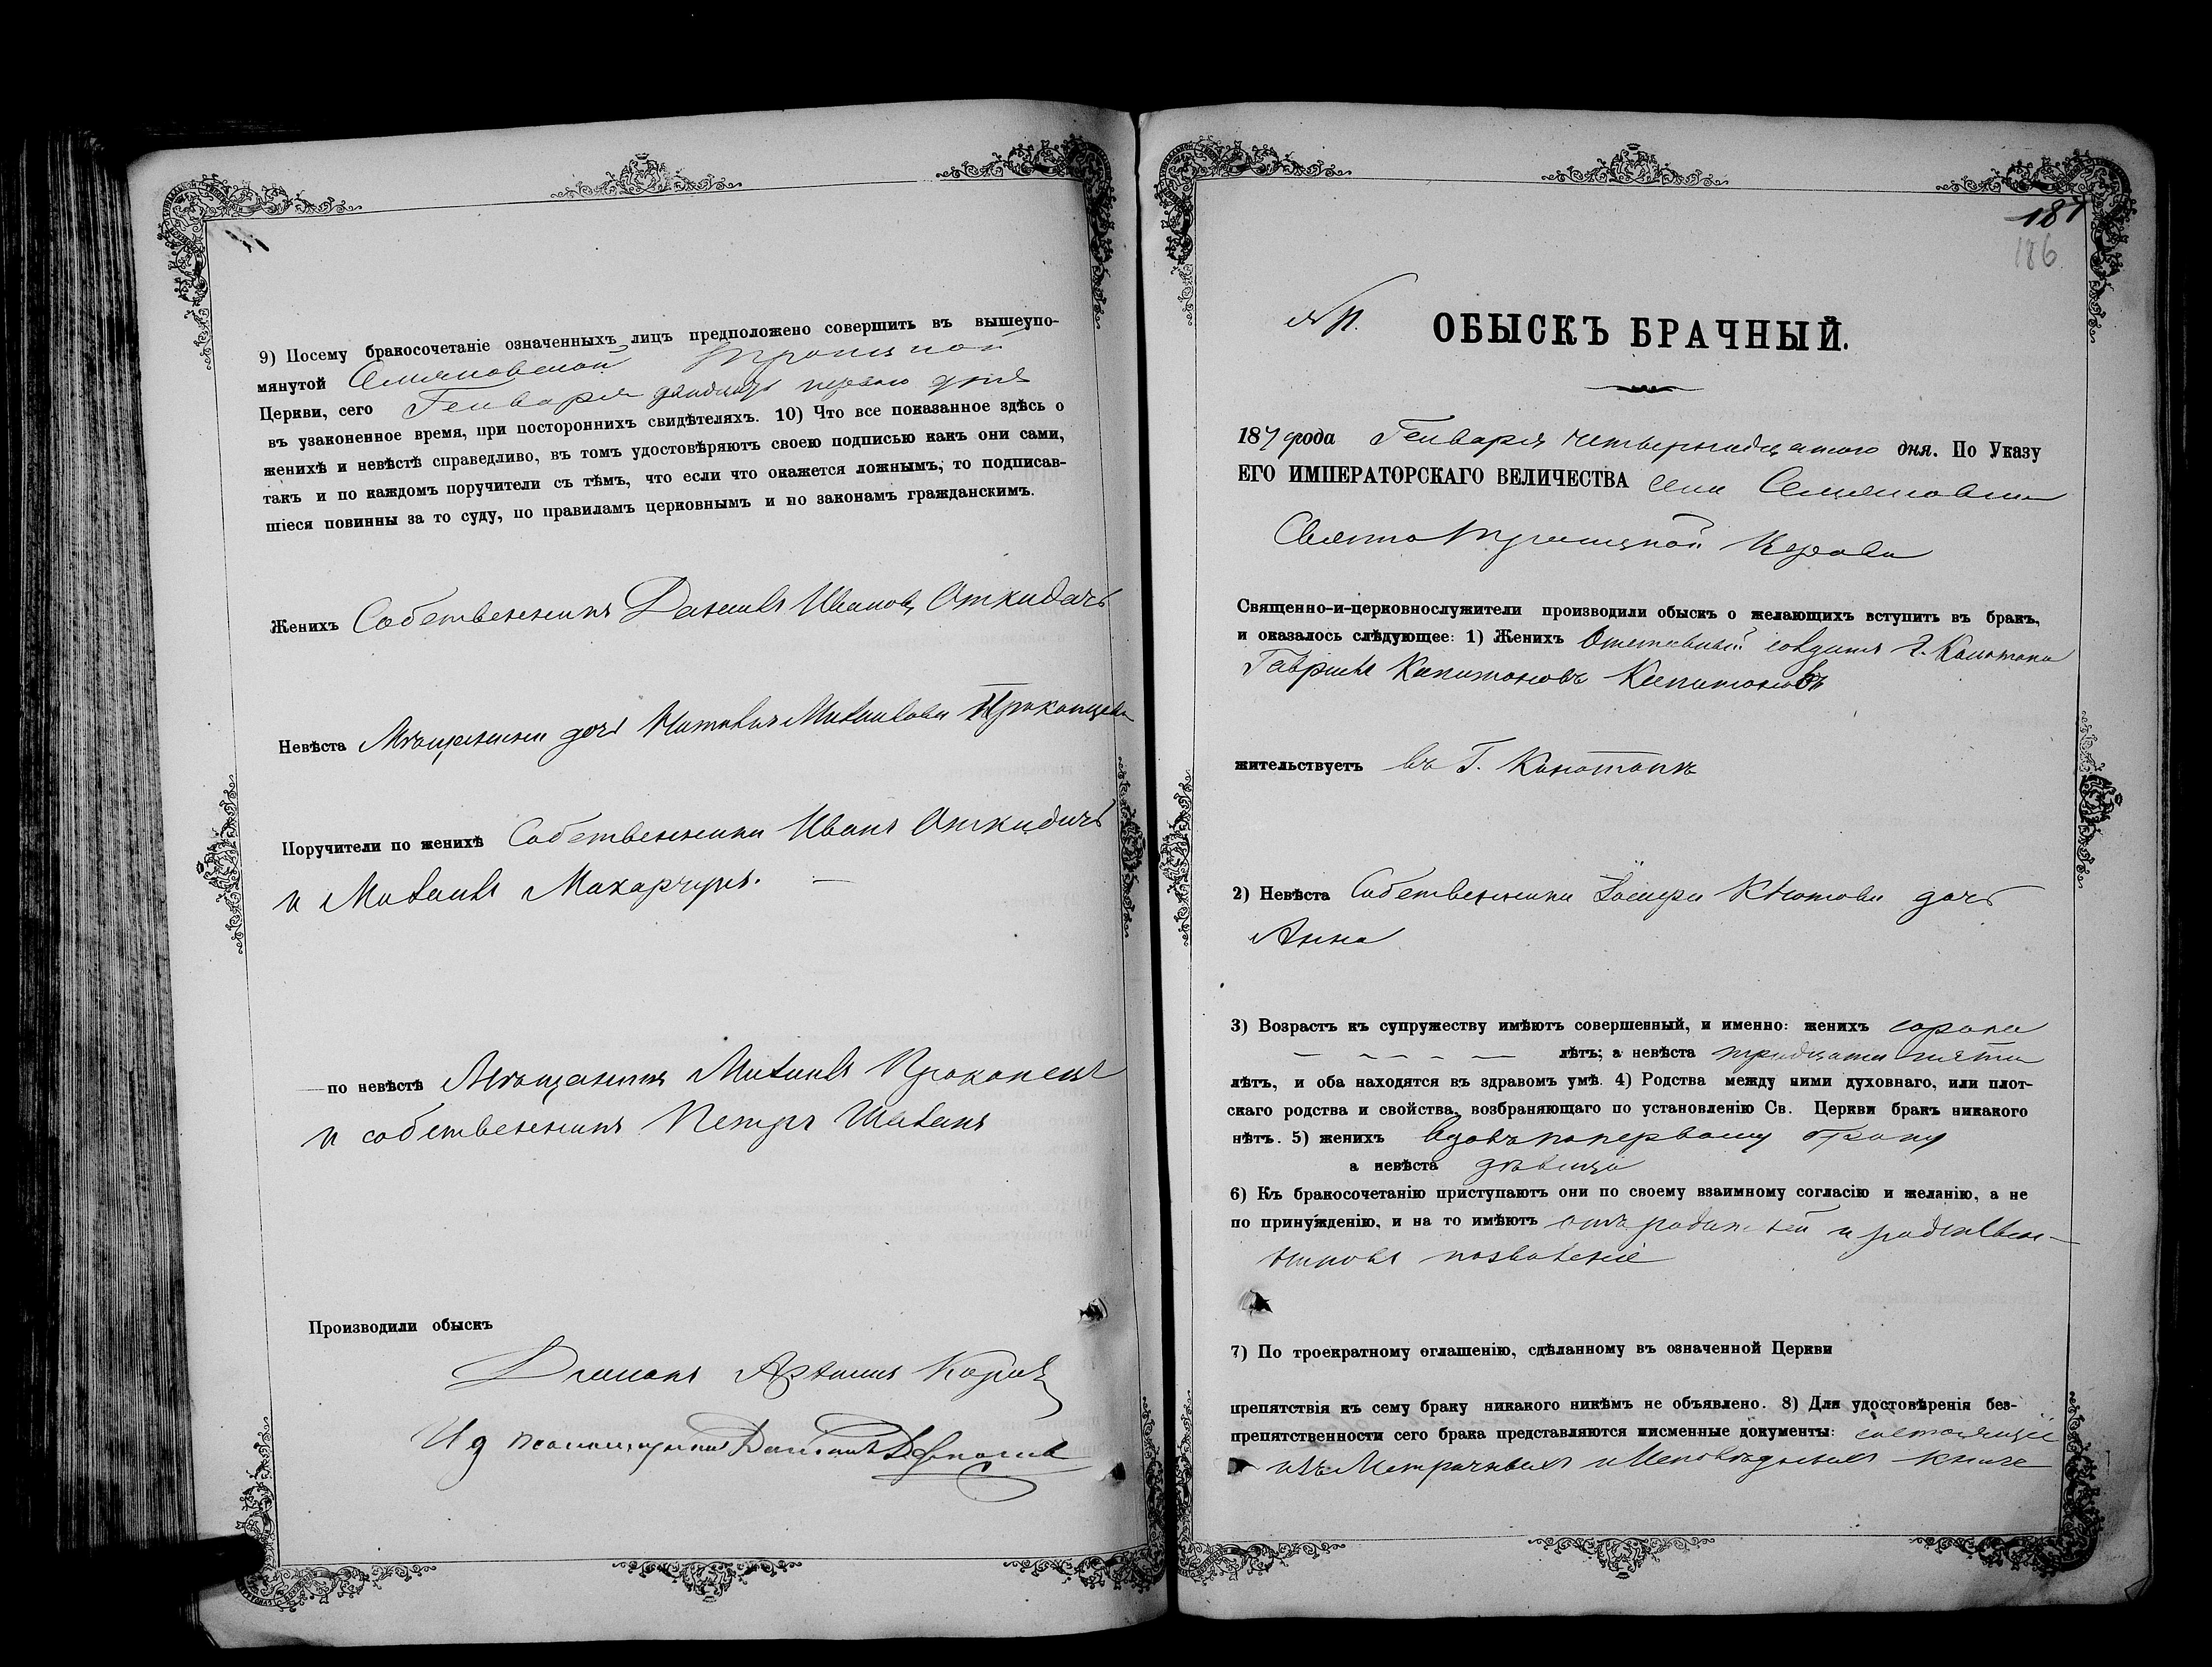 9) Посему бракосочетаніе означенныхъ лицъ предположено совершить въ вышеупо-
мянутой Семяновской Троицкой
Церкви, сего Генваря двадцать перваго дня
въ узаконенное время, при постороннихъ свидѣтеляхъ. 10) Что все показанное здѣсь о
женихѣ и невѣстѣ справедливо, въ томъ удостовѣряютъ своею подписью какъ они сами,
такъ и по каждомъ поручители съ тѣмъ, что если что окажется ложнымъ, то подписав-
шіеся повинны за то суду, по правиламъ церковнымъ и по законамъ гражданскимъ.
Женихъ Собственникъ Даніилъ Ивановъ Откидачъ
Невѣста Мѣщанина дочь Наталія Михаилова Прокопцева
Поручители по женихѣ Собственники Иванъ Откидачъ
и Михаилъ Махарчукъ.
— по невѣстѣ Мѣщанинъ Михаилъ Прокопецъ
и собственникъ Петръ Шаханъ
Производили обыскъ
Діаконъ
И д псаломщика
187
186
№
ОБЫСКЪ БРАЧНЫЙ.
187 года Генваря четырнадцатого дня. По Указу
ЕГО ИМПЕРАТОРСКАГО ВЕЛИЧЕСТВА села Семяновки
Святотроицкой Церкви
Священно-и-церковнослужители производили обыскъ о желающихъ вступить въ бракъ,
и оказалось слѣдующее: 1) Женихъ Отставный солдатъ г. Конотопа
Гавріилъ Капитоновъ Капитоновъ
жительствуетъ въ Г. Конотопѣ
2) Невѣста Собственника дочь
Анна
3) Возрастъ къ супружеству имѣютъ совершенный, и именно: женихъ сорока
лѣтъ; а невѣста тридцати пяти
лѣтъ, и оба находятся въ здравомъ умѣ. 4) Родства между ними духовнаго, или плот-
скаго родства и свойства, возбраняющаго по установленію Св. Церкви бракъ никакого
нѣтъ. 5) женихъ вдовъ по первому браку
а невѣста дѣвица
6) Къ бракосочетанію приступаютъ они по своему взаимному согласію и желанію, а не
по принужденію, и на то имѣютъ отъ родителей и родствен-
никовъ позволеніе
7) По троекратному оглашенію, сдѣланному въ означенной Церкви
препятствія къ сему браку никакого никѣмъ не объявлено. 8) Для удостовѣренія без-
препятственности сего брака представляются писменные документы: состоящіе
изъ Метричныхъ и Исповѣдныхъ книгъ